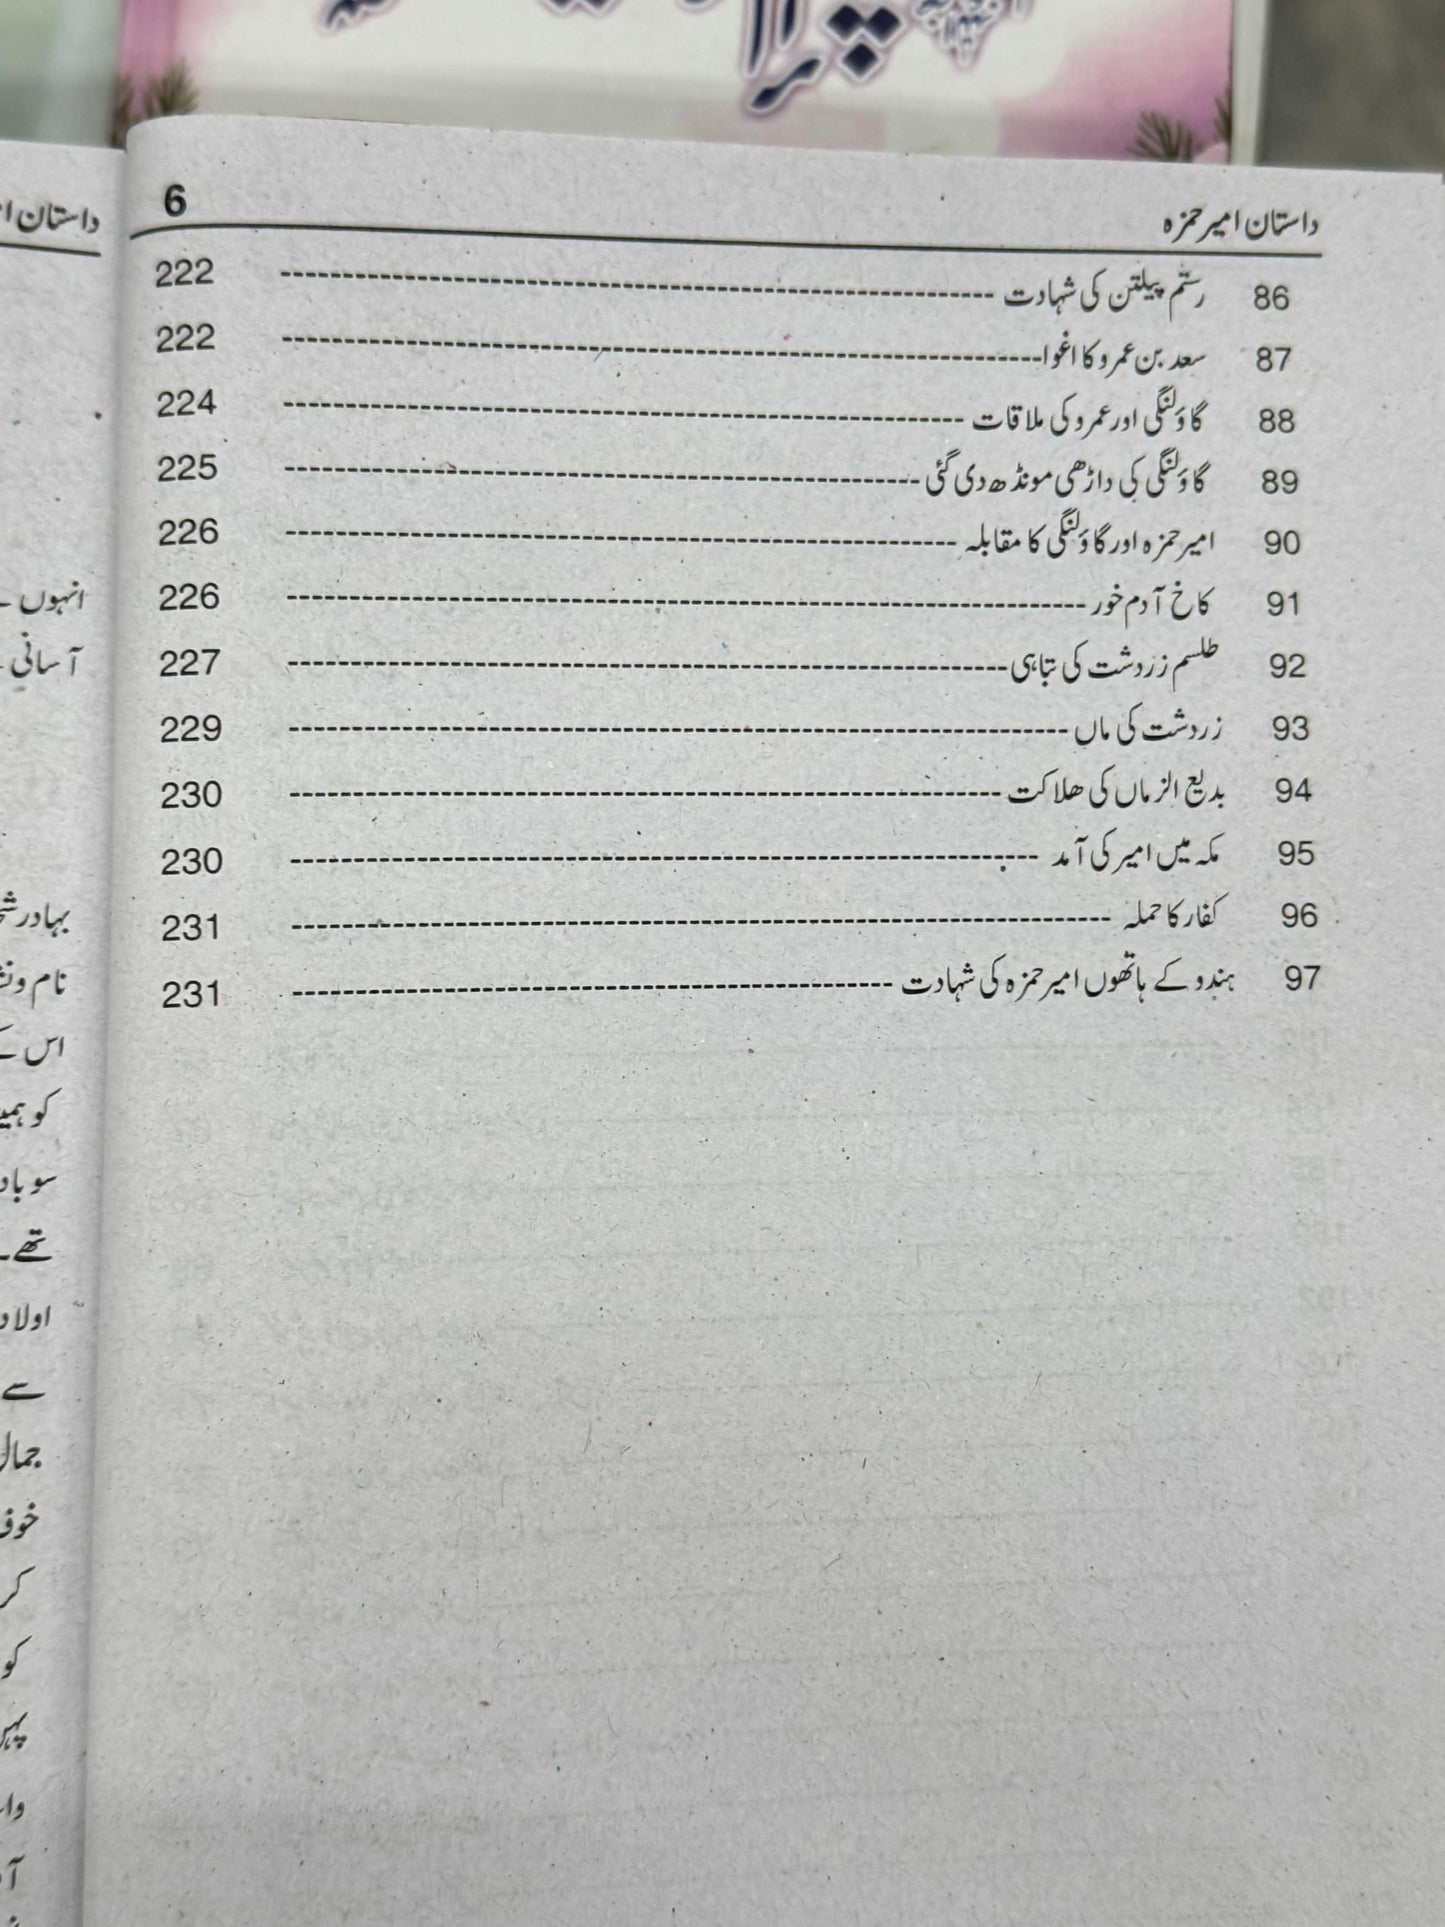 داستان امیر حمزہ 6
86 رستم پیلتن کی شہادت ---------- 222
87 سعد بن عمرو کا اغوا ---------- 222
88 گاؤلنگی اور عمرو کی ملاقات ---------- 224
89 گاؤلنگی کی داڑھی مونڈھ دی گئی ---------- 225
90 امیر حمزہ اور گاؤلنگی کا مقابلہ ---------- 226
91 کاخ آدم خور ---------- 226
92 طلسم زردشت کی تباہی ---------- 227
93 زردشت کی ماں ---------- 229
94 بدیع الزماں کی ھلاکت ---------- 230
95 مکہ میں امیر کی آمد ---------- 230
96 کفار کا حملہ ---------- 231
97 ہندو کے ہاتھوں امیر حمزہ کی شہادت ---------- 231
داستان
انہوں
آسانی
بہادر
نام و
اس کے
کو
سو
تھے۔
اولاد
سے
جمال
خوف
کر
کو